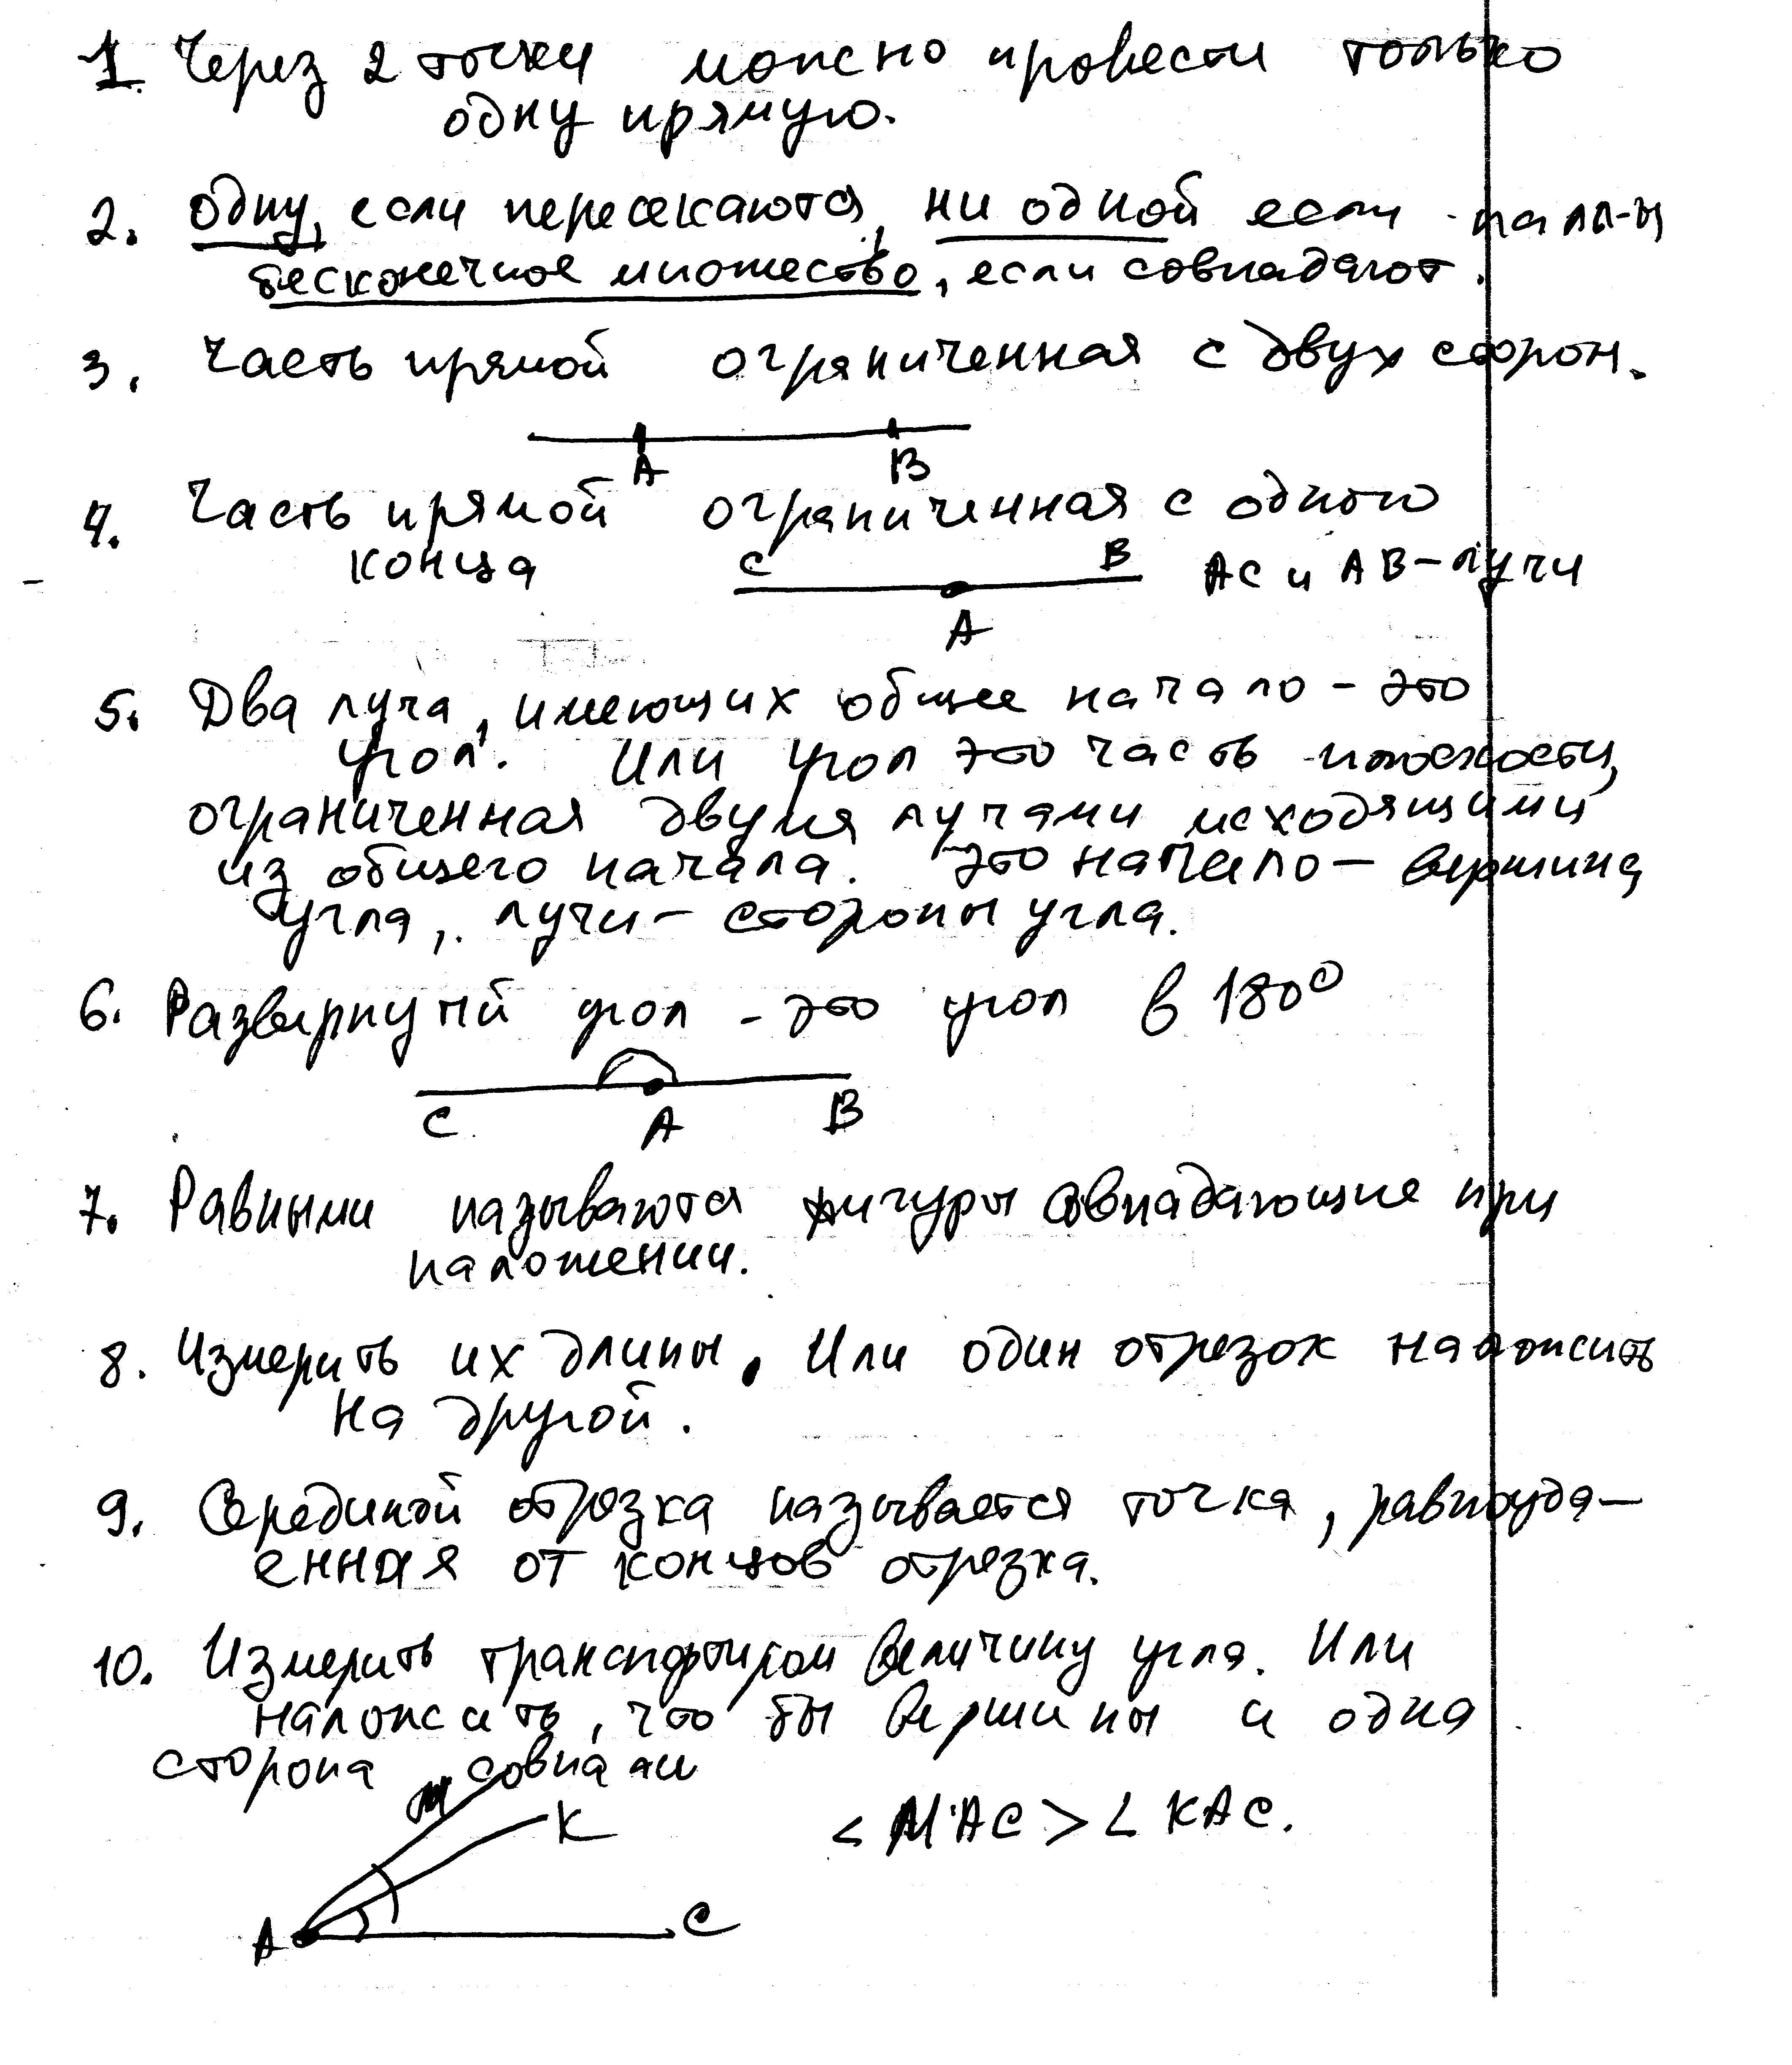 1. Через 2 точки можно провести только
одну прямую.
2. одну, если пересекаются, ни одной если пал-ы
бесконечное множество, если совпадают.
3. Часть прямой ограниченная с двух сторон.
A B
4. Часть прямой ограниченная с одного
конца C B AC и AB - лучи
A
5. Два луча, имеющих общее начало - это
угол. Или угол это часть плоскости,
ограниченная двумя лучами исходящими
из общего начала. Это начало - вершина
угла, лучи - стороны угла.
6. Развернутый угол - это угол в 180°
C A B
7. Равными называются фигуры совпадающие при
наложении.
8. Измерить их длины. Или один отрезок наложить
на другой.
9. Серединой отрезка называется точка, равноуда-
енная от концов отрезка.
10. Измерить транспортиром величину угла. Или
наложить, что бы вершины и одна
сторона совпали
M K < MAC > ∠ KAC.
A C